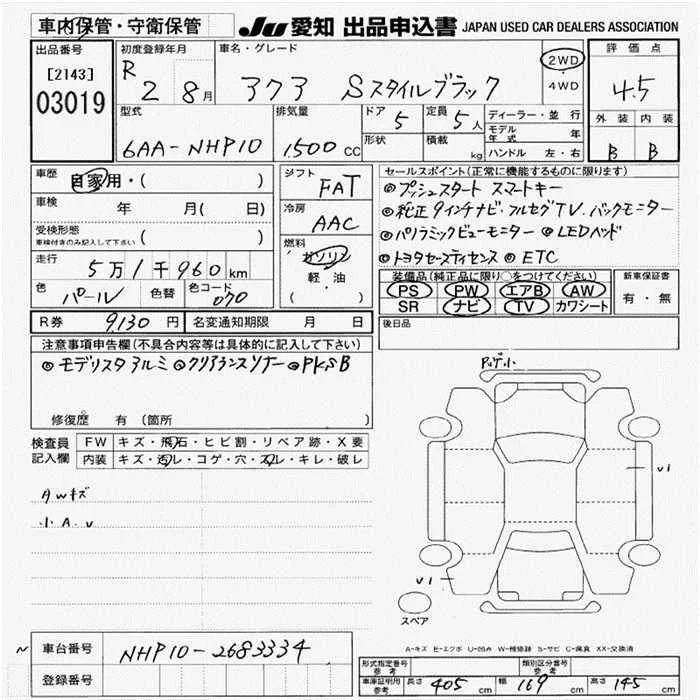 車内保管・守衛保管 JU 愛知 出品申込書 JAPAN USED CAR DEALERS ASSOCIATION
出品番号 初度登録年月 車名・グレード 評価点
[2143] R 2 8月 アクア Sスタイルブラック 2WD 4WD 4.5
03019
型式 排気量 ドア 定員 ディーラー・並行 外装 内装
6AA-NHP10 1500 CC 5 5人 モデル年式 年
形状 積載 kg ハンドル 左・右 B B
車歴 自家用・( ) シフト FAT セールスポイント(正常に機能するものに限ります)
◎プッシュスタート スマートキー
車検 年 月( 日) 冷房 AAC ◎純正9インチナビ・フルセグTV.バックモニター
受検形態 ( )
車検付きのみ記入して下さい
◎パノラミックビューモニター ◎LEDヘッド
走行 5万1千960km 燃料 ガソリン 軽・油 ( )
◎トヨタセーフティセンス ◎ETC
色 パール 色替 色コード 070
装備品(純正品に限り○をつけてください) 新車保証書
PS PW エアB AW 有・無
SR ナビ TV カワシート
R券 9,130円 名変通知期限 月 日 後日品
注意事項申告欄(不具合内容等は具体的に記入して下さい)
◎モデリスタアルミ ◎クリアランスソナー ◎PKSB
修復歴 有(箇所 )
検査員記入欄 FW キズ・飛石・ヒビ割・リペア跡・X要
内装 キズ・汚レ・コゲ・穴・スレ・キレ・破レ
AWキズ
小A.U
U1
U1
スペア
A-キズ E-エクボ U-凹み W-補修跡 S-サビ C-腐食 XX-交換済
車台番号 NHP10-2683334
登録番号
形式指定番号 参考 類別区分番号 参考
車庫証明用 参考 長さ 405 cm 幅 169 cm 高さ 145 cm